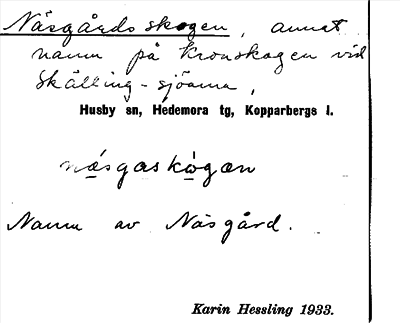 Näsgårdsskogen, annat
namn på Kronskogen vid
Skälling-sjöarna,
Husby sn, Hedemora tg, Kopparbergs l.
näsgaskògæn
Namn av Näsgård.
Karin Hessling 1933.